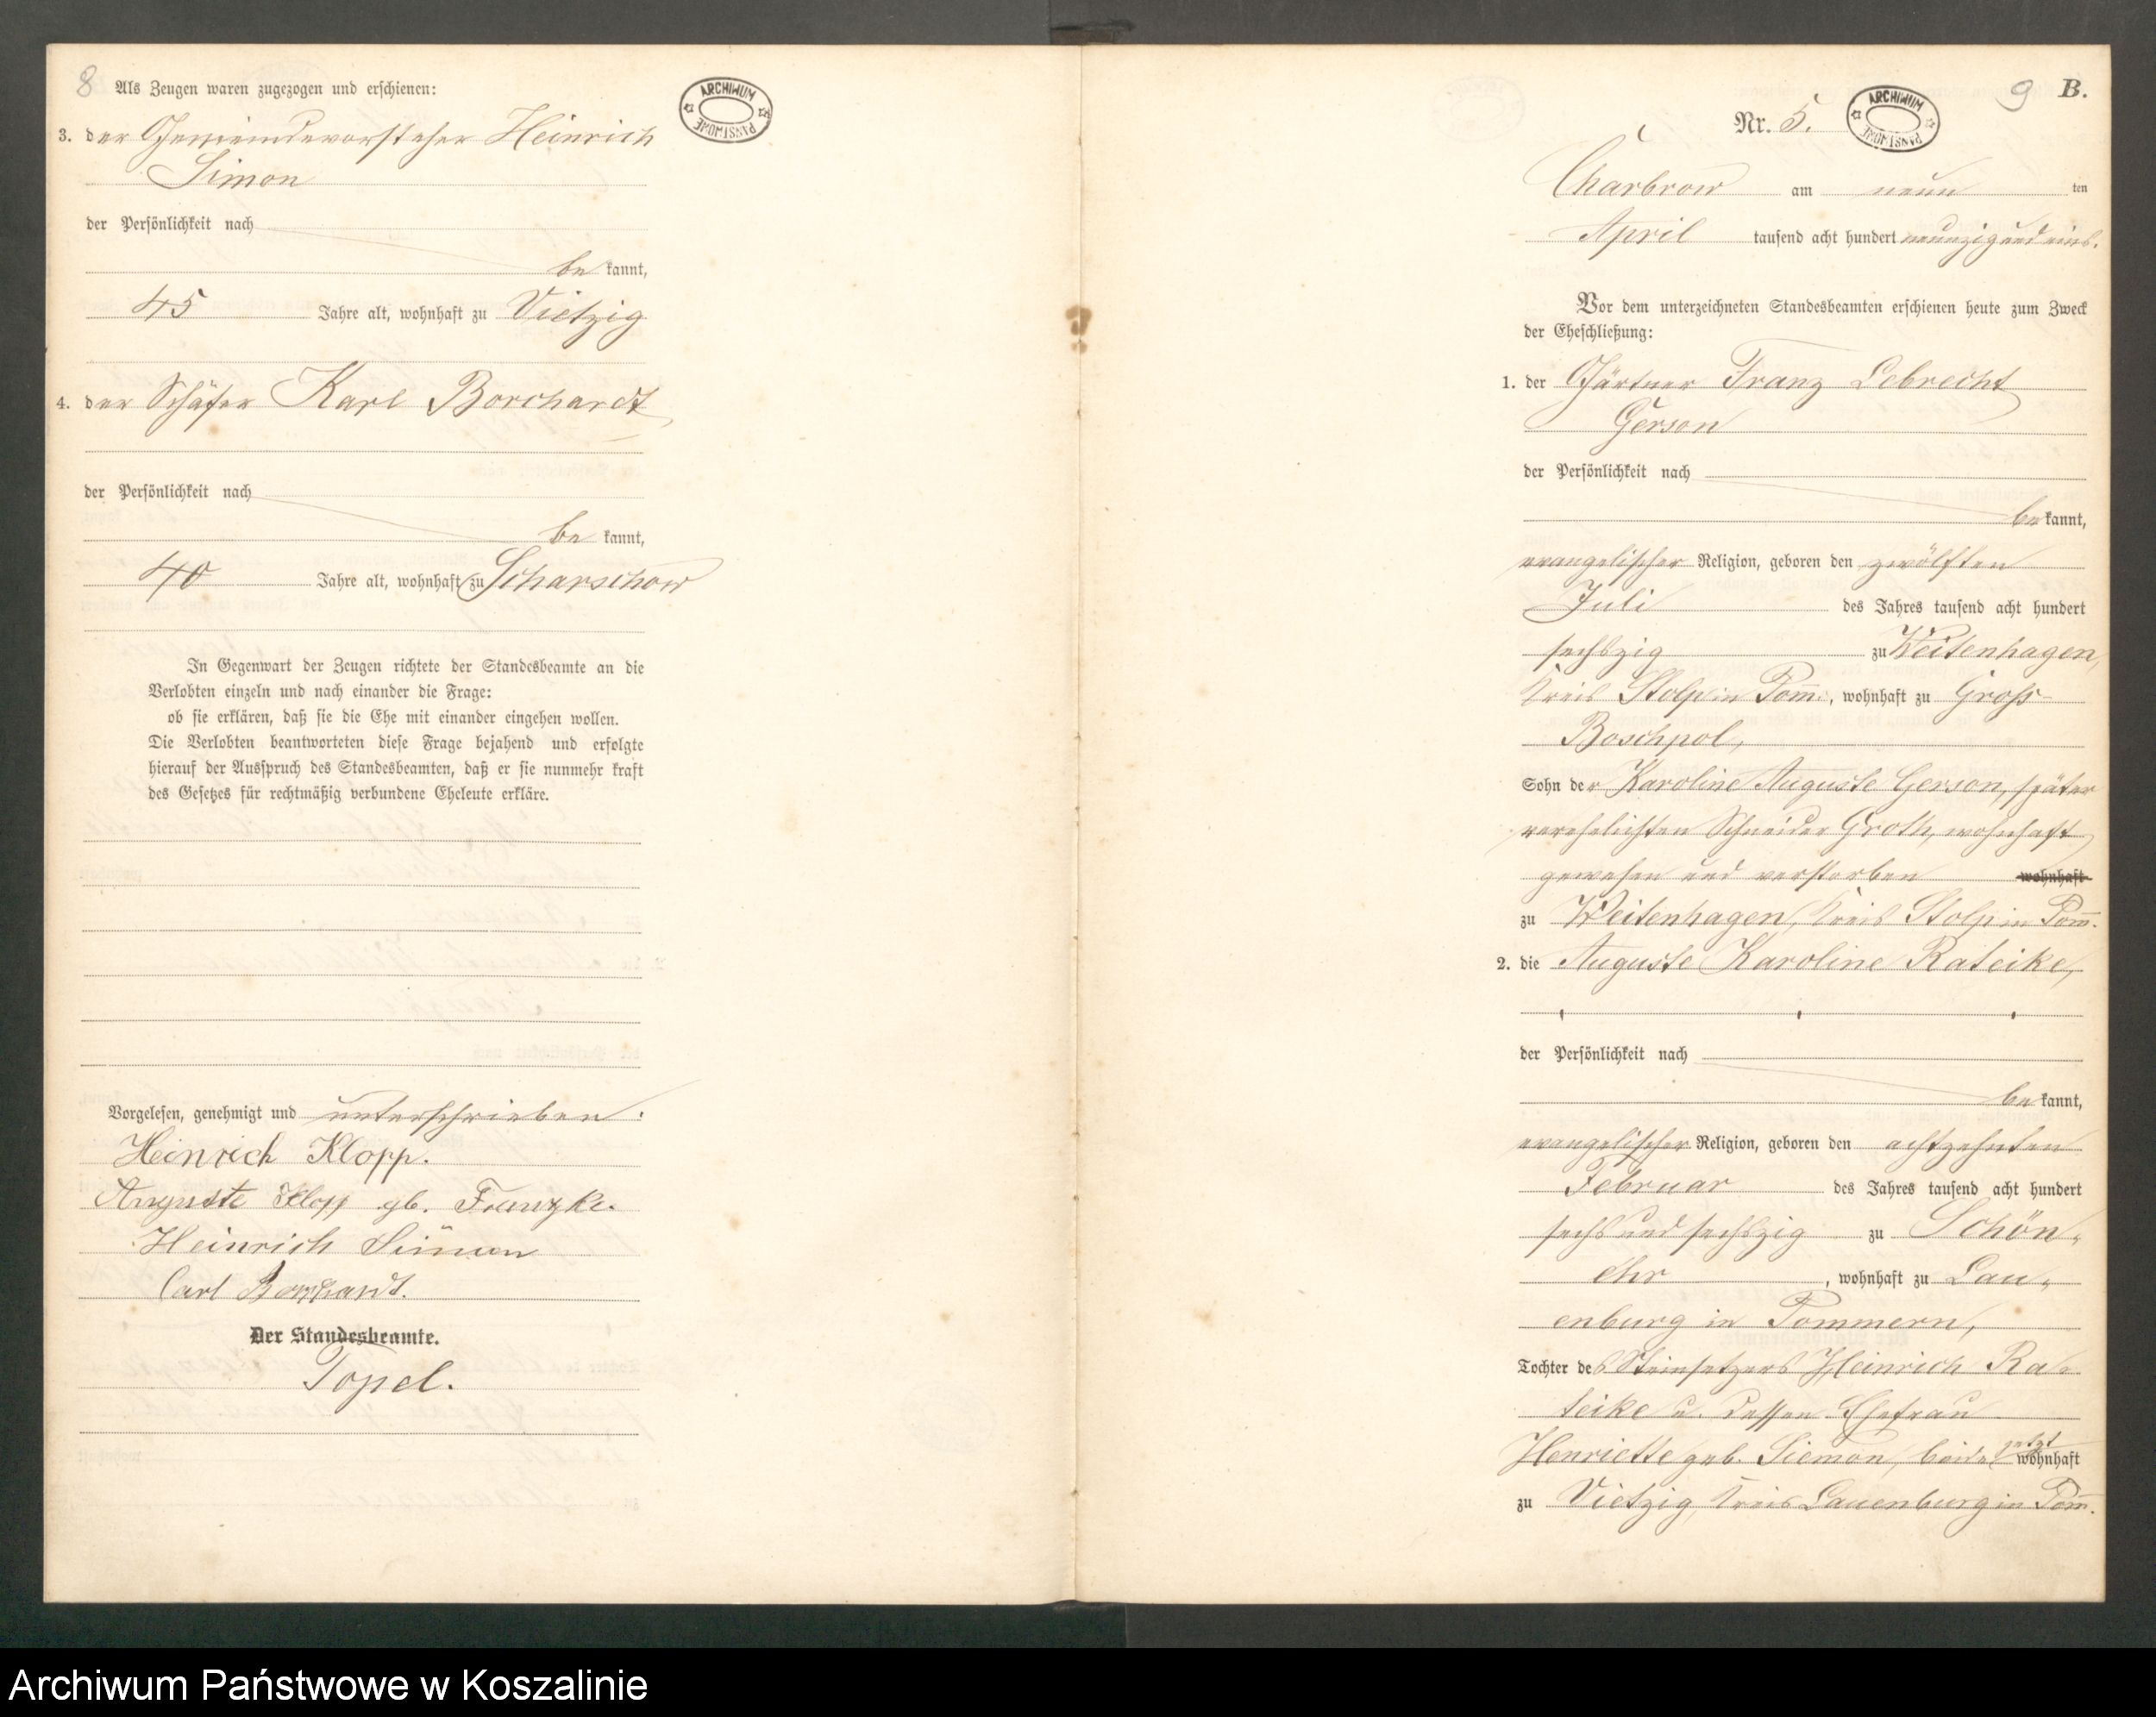 8 Als Zeugen waren zugezogen und erschienen:
ARCHIWUM PAŃSTWOWE
3. der Gemeindevorsteher Heinrich
Simon
der Persönlichkeit nach
be kannt,
45 Jahre alt, wohnhaft zu Vietzig
4. der Schäfer Karl Borchardt
der Persönlichkeit nach
be kannt,
40 Jahre alt, wohnhaft zu Scharschow
In Gegenwart der Zeugen richtete der Standesbeamte an die
Verlobten einzeln und nach einander die Frage:
ob sie erklären, daß sie die Ehe mit einander eingehen wollen.
Die Verlobten beantworteten diese Frage bejahend und erfolgte
hierauf der Ausspruch des Standesbeamten, daß er sie nunmehr kraft
des Gesetzes für rechtmäßig verbundene Eheleute erkläre.
Vorgelesen, genehmigt und unterschrieben.
Heinrich Klopp.
Auguste Klopp gb. Franzke.
Heinrich Simon
Carl Borchardt.
Der Standesbeamte.
Topel.
9 B.
Nr. 5.
ARCHIWUM PAŃSTWOWE
Charbrow am neun ten
April tausend acht hundert neunzig und eins.
Vor dem unterzeichneten Standesbeamten erschienen heute zum Zweck
der Eheschließung:
1. der Gärtner Franz Lebrecht
Gerson
der Persönlichkeit nach
be kannt,
evangelischer Religion, geboren den zwölften
Juli des Jahres tausend acht hundert
sechszig zu Weitenhagen,
Kreis Stolp in Pom., wohnhaft zu Groß-
Boschpol,
Sohn der Karoline Auguste Gerson, später
verehelichten Schneider Groth, wohnhaft
gewesen und verstorben wohnhaft
zu Weitenhagen, Kreis Stolp in Pom.
2. die Auguste Karoline Rateike,
der Persönlichkeit nach
be kannt,
evangelischer Religion, geboren den achtzehnten
Februar des Jahres tausend acht hundert
sechs und sechszig zu Schön-
ehr, wohnhaft zu Lau-
enburg in Pommern,
Tochter des Steinsetzers Heinrich Ra-
teike u. dessen Ehefrau
Henriette geb. Siemon, beide jetzt wohnhaft
zu Vietzig, Kreis Lauenburg in Pom.
Archiwum Państwowe w Koszalinie